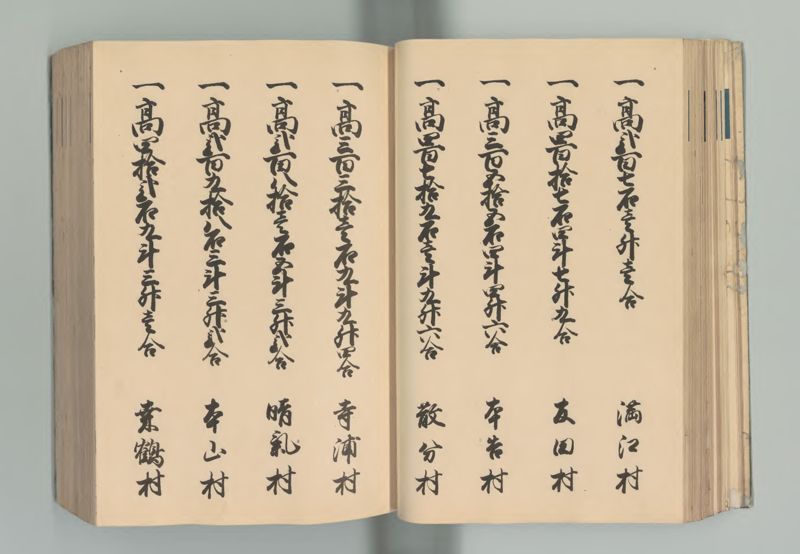 一高弐百七石壱升壱合 満江村
一高四百拾七石四斗七升九合 友田村
一高三百五拾五石四斗四升六合 本告村
一高四百七拾九石壱斗九升六合 散分村
一高三百三拾壱石九斗九升四合 寺浦村
一高弐百八拾壱石五斗三升弐合 晴気村
一高弐百九拾八石三斗三升弐合 本山村
一高四拾弐石九斗三升壱合 鶴村